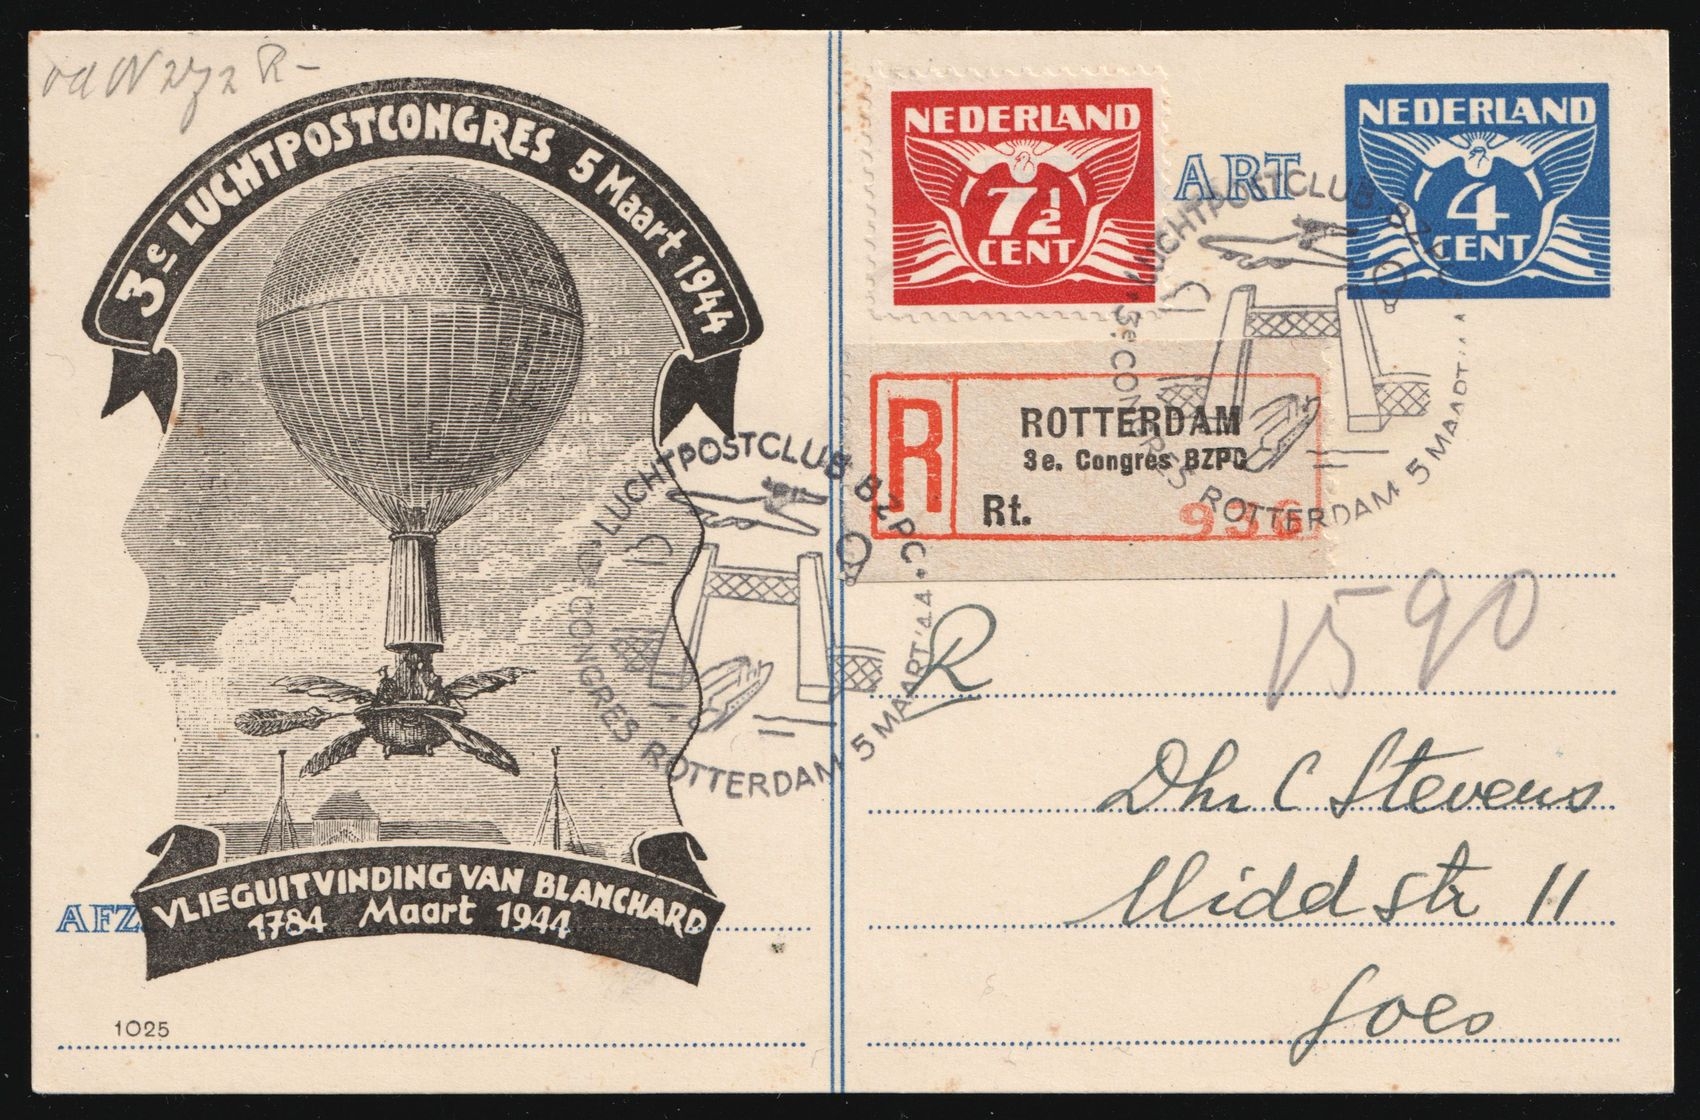 3e LUCHTPOSTCONGRES 5 Maart 1944
VLIEGUITVINDING VAN BLANCHARD
1784 Maart 1944
AFZ.
1025
NEDERLAND
7½
CENT
ART
NEDERLAND
4
CENT
R
ROTTERDAM
3e. Congres BZPC
Rt.
936
LUCHTPOSTCLUB BZPC. 3e CONGRES ROTTERDAM 5 MAART '44
LUCHTPOSTCLUB BZPC. CONGRES ROTTERDAM 5 MAART '44
R
1590
Dhr C Stevens
Middstr 11
Goes